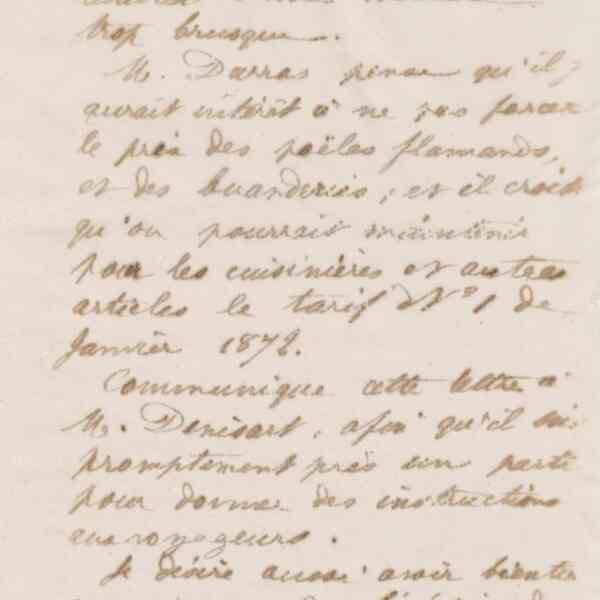 trop brusque.
M. Darras pense qu'il y
aurait intérêt à ne pas forcer
le prix des poëles flamands,
et des buanderies ; et il croit
qu'on pourrait maintenir
pour les cuisinières et autres
articles le tarif N° 1 de
Janvier 1872.
Communique cette lettre à
M. Denisart, afin qu'il soit
promptement pris un parti
pour donner des instructions
aux voyageurs.
Je désire aussi avoir bientôt